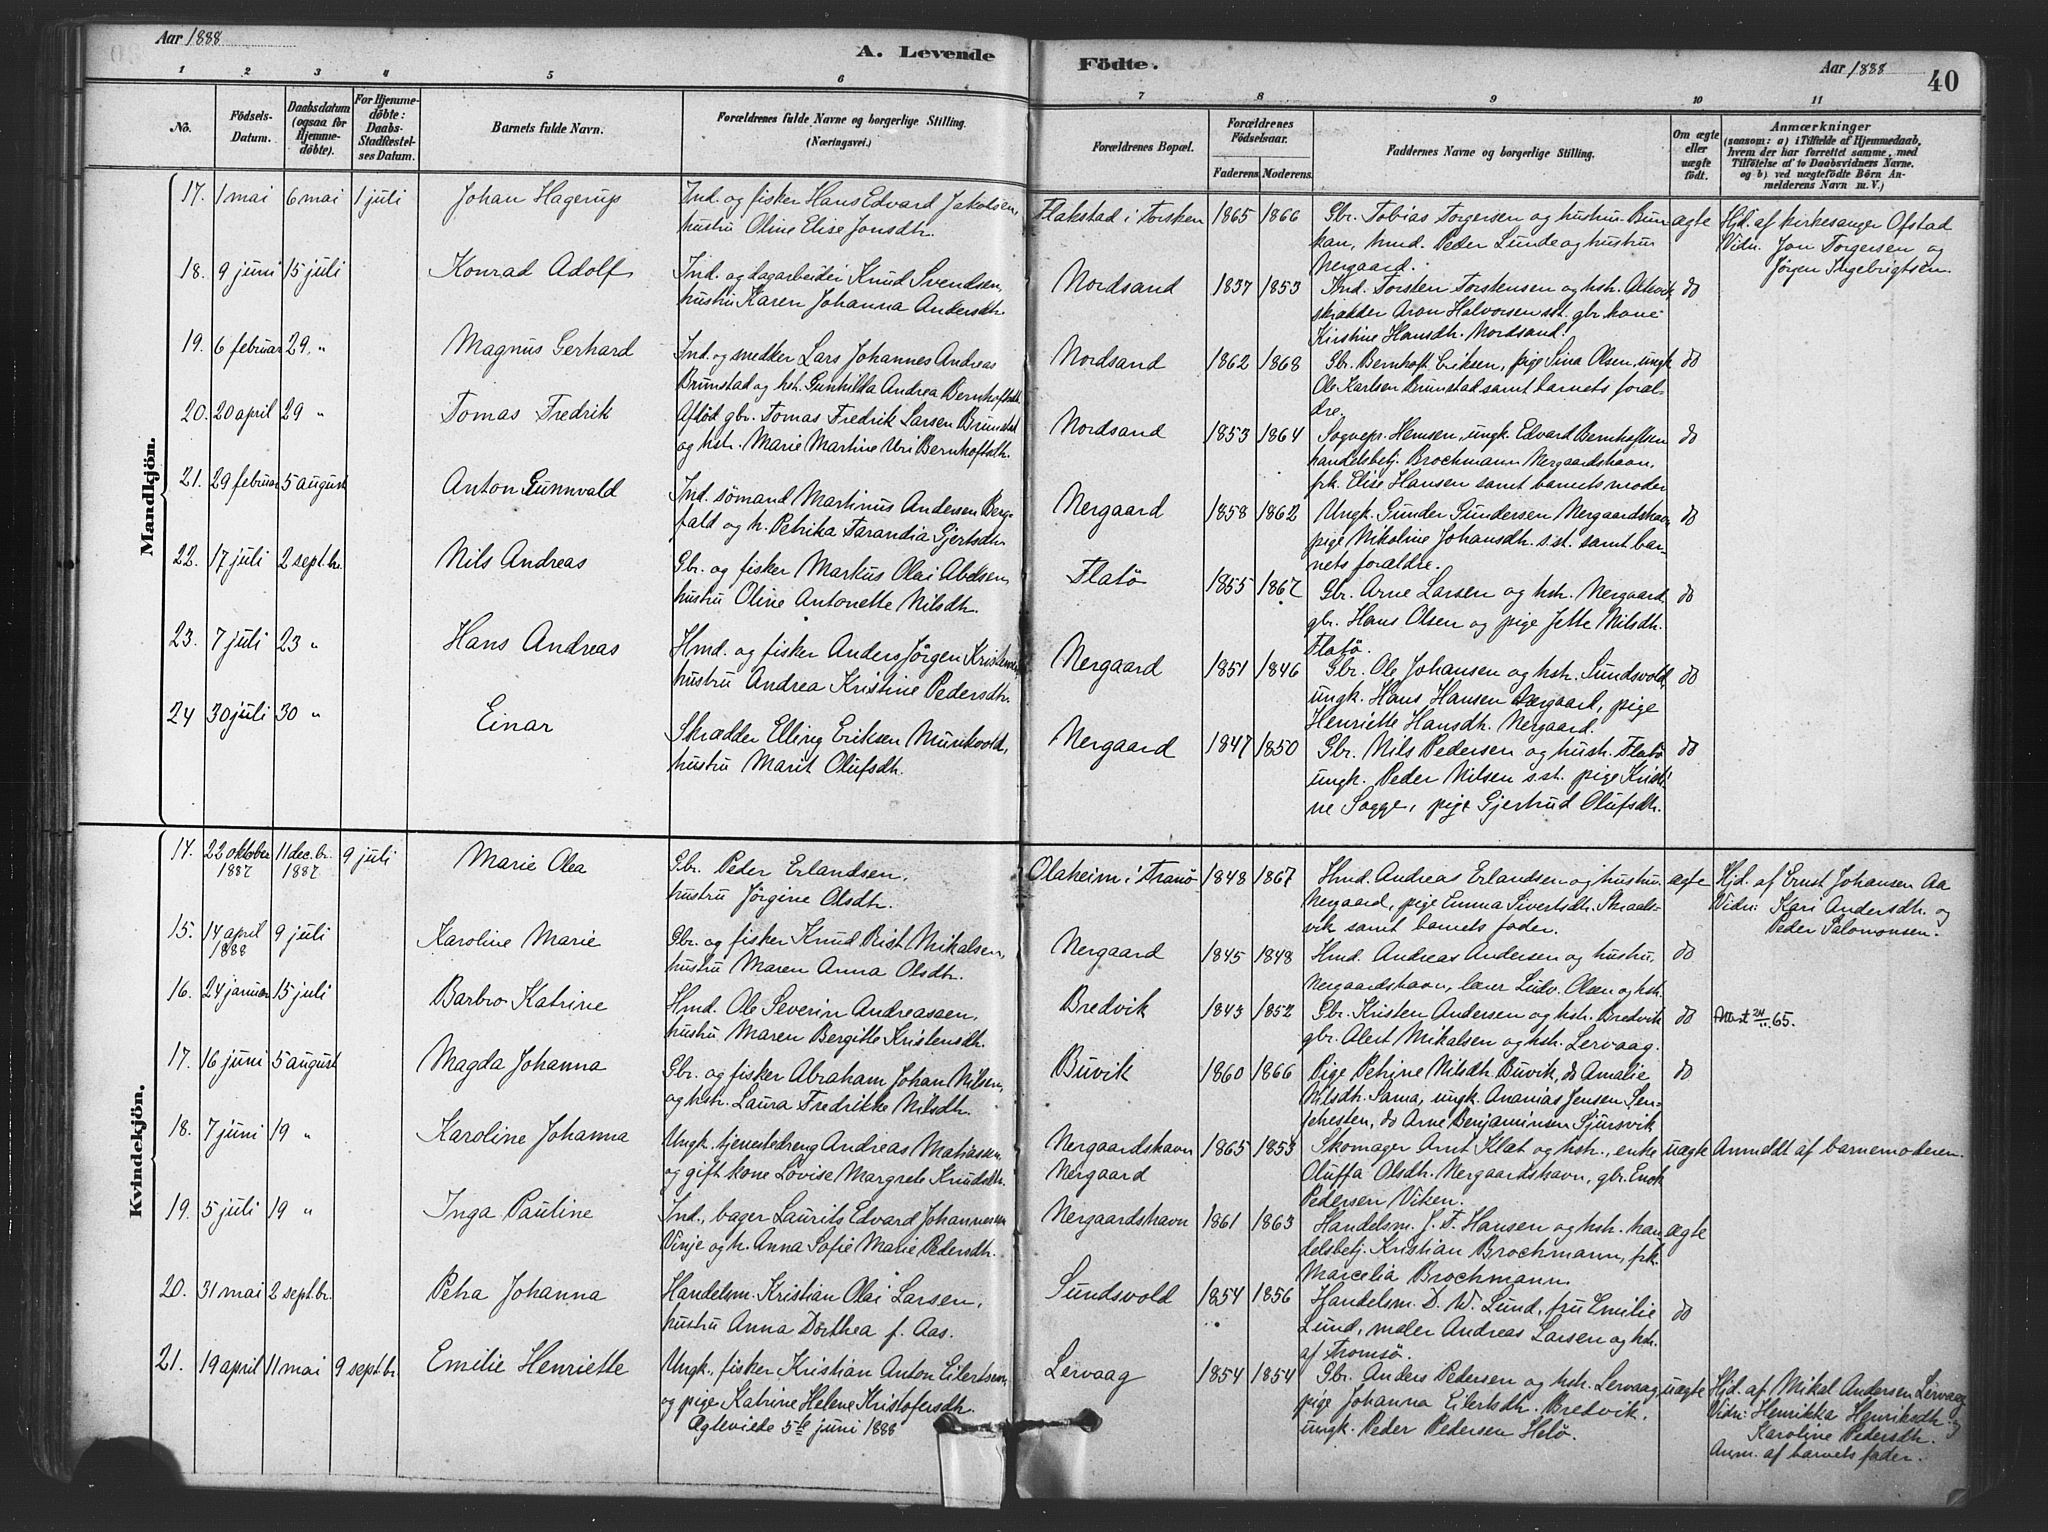 Aar 1888
A. Levende
Födte.
Aar 1888
40
1 2 3 4 5 6 7 8 9 10 11
No.
Födsels-
Datum.
Daabsdatum
(ogsaa for
Hjemme-
döbte).
For Hjemme-
döbte:
Daabs-
Stadfæstel-
ses Datum.
Barnets fulde Navn.
Forældrenes fulde Navne og borgerlige Stilling.
(Næringsvei.)
Forældrenes Bopæl.
Forældrenes
Födselsaar.
Faderens. Moderens.
Faddernes Navne og borgerlige Stilling.
Om ægte
eller
uægte
födt.
Anmærkninger
(saasom: a) i Tilfælde af Hjemmedaab,
hvem der har forrettet samme, med
Tilföielse af to Daabsvidners Navne.
og b) ved uægtefödte Börn An-
melderens Navn m. V.)
Mandkjön.
17. 1 mai 6 mai 1 juli Johan Hagerup
Ind. og fisker Hans Edvard Jakobsen,
hustru Oline Elise Jonsdtr.
Flakstad i Torsken 1865 1866
Gbr. Tobias Torgersen og hustru Bun
kan, hmd. Peder Lunde og hustru
Nergaard.
ægte
Hjd. af kirkesanger Ofstad
Vidn. Jon Torgersen og
Jörgen Ingebrigtsen.
18. 9 juni 15 juli Konrad Adolf
Ind. og dagarbeider Knud Svendsen,
hustru Karen Johanna Andersdtr.
Nordsand 1837 1853
Ind. Torsten Torstensen og hstr.
skrædder Aron Halvorsen sst. gbr. kone
Kirstine Hansdtr. Nordsand.
do
19. 6 februar 29 " Magnus Gerhard
Ind. og smedker Lars Johannes Andreas
Brunstad og hstr. Gunhilda Andrea Bernhoftsdtr.
Nordsand 1862 1868
Gbr. Bernhoft Eriksen, pige Sina Olsen, ungk.
Ole Karlsen Brunstad samt barnets foræl-
dre.
do
20. 20 april 29 " Tomas Fredrik
Afdöd gbr. Tomas Fredrik Larsen Brunstad
og hstr. Marie Martine Uri Bernhoftsdtr.
Nordsand 1853 1864
Sognepr. Hemsen, ungk. Edvard Bernhoftsen
handelsbetj. Brochmann Nergaardshavn,
frk. Elise Hansen samt barnets moder
do
21. 29 februar 5 august Anton Gunnvald
Ind. sömand Martinus Andersen Berg-
fald og h. Petrika Farandia Gjertsdtr.
Nergaard 1858 1862
Ungk. Gunder Gundersen Nergaardshavn
pige Nikoline Johansdtr. s.st. samt bar-
nets forældre.
do
22. 17 juli 2 septbr. Nils Andreas
Gbr. og fisker Markus Olai Abelsen,
hustru Oline Antonette Nilsdtr.
Flatö 1855 1867
Gbr. Arne Larsen og hstr. Nergaard
gbr. Hans Olsen og pige Jette Nilsdtr.
Flatö.
do
23. 7 juli 23 " Hans Andreas
Hmd. og fisker Anders Jörgen Kristensen
hustru Andrea Kristine Pedersdtr.
Nergaard 1851 1846
Gbr. Ole Johansen og hstr. Sundsvold,
ungk. Hans Hansen Nergaard, pige
Henriette Hansdtr. Nergaard.
do
24 30 juli 30 " Einar
Skrædder Elling Eriksen Munkvold,
hustru Marit Olufsdtr.
Nergaard 1847 1850
Gbr. Nils Pedersen og hustr. Flatö
ungk. Peder Nilsen s.st. pige Kristi
ne Sogge, pige Gjertrud Olufsdtr.
do
Kvindekjön.
14. 22 oktober 1887 11 dec.br. 1887 9 juli Marie Olea
Gbr. Peder Erlandsen,
hustru Jörgine Olsdtr.
Olaheim i Tranö 1848 1867
Hmd. Andreas Erlandsen og hustru
Nergaard, pige Emma Sivertsdtr. Skraals-
vik samt barnets fader.
ægte
Hjd. af Ernst Johansen Aa
Vidn: Kari Andersdtr. og
Peder Salomonsen.
15. 14 april 1888 9 juli Karoline Marie
Gbr. og fisker Knud Rist Mikalsen,
hustru Maren Anna Olsdtr.
Nergaard 1845 1848
Hmd. Andreas Andersen og hustru,
Nergaardshavn, lærer Ludv. Olsen og hstr.
do
16. 24 januar 15 juli Barbro Katrine
Hmd. Ole Severin Andreassen,
hustru Maren Bergitte Kristensdtr.
Bredvik 1843 1852
Gbr. Kristen Andersen og hstr. Bredvik
gbr. Alert Mikalsen og hstr. Lervaag.
do
Attest 24/11 65.
17. 16 juni 5 august Magda Johanna
Gbr. og fisker Abraham Johan Nilsen,
og hstr. Laura Fredrikke Nilsdtr.
Buvik 1860 1866
Pige Petrine Nilsdtr. Buvik, do Amalie
Nilsdtr. Sama, ungk. Ananias Jensen Sen-
jehesten, do Arne Benjaminsen Sjursvik
do
18. 7 juni 19 " Karoline Johanna
Ungk. tjenestedreng Andreas Matiassen
og gift kone Lovise Margrete Knudsdtr.
Nergaardshavn
Nergaard
1865 1853
Skomager Arnt Klat og hstr., enke
Oluffa Olsdtr. Nergaardshavn, gbr. Enok
Pedersen Viken.
uægte
Anmeldt af barnemoderen.
19. 5 juli 19 " Inga Pauline
Ind., bager Laurits Edvard Johannessen
Vinje og h. Anna Sofie Marie Pedersdtr.
Nergaardshavn 1861 1863
Handelsm. J. F. Hansen og hstr. han
delsbetj. Kristian Brochmann, frk.
Marcelia Brochmann.
ægte
20. 31 mai 2 septbr. Petra Johanna
Handelsm. Kristian Olai Larsen,
hustru Anna Dorthea f. Aas.
Sundsvold 1854 1856
Handelsm. D. W. Lund, fru Emilie
Lund, maler Andreas Larsen og hstr.
af Tromsö.
do
21. 19 april 11 mai 9 septbr Emilie Henriette
Ungk., fisker Kristian Anton Eilertsen
og pige Katrine Helene Kristofersdtr.
Ægteviede 5te juni 1888
Lervaag 1854 1854
Gbr. Anders Pedersen og hstr. Lervaag
pige Johanna Eilertsdtr. Bredvik,
ungk. Peder Pedersen Helö.
uægte
Hjd. af Mikal Andersen Lervaag
Vidn: Henrikka Henriksdtr. og
Karoline Pedersdtr.
Anm. af barnets fader.